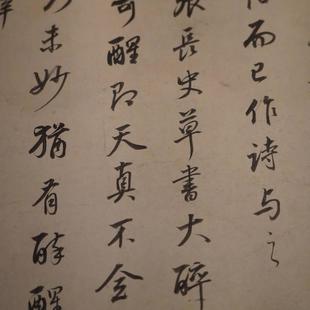 而已作诗与之
張長史草書大醉
奇醒即天真不全
未妙猶有醉醒